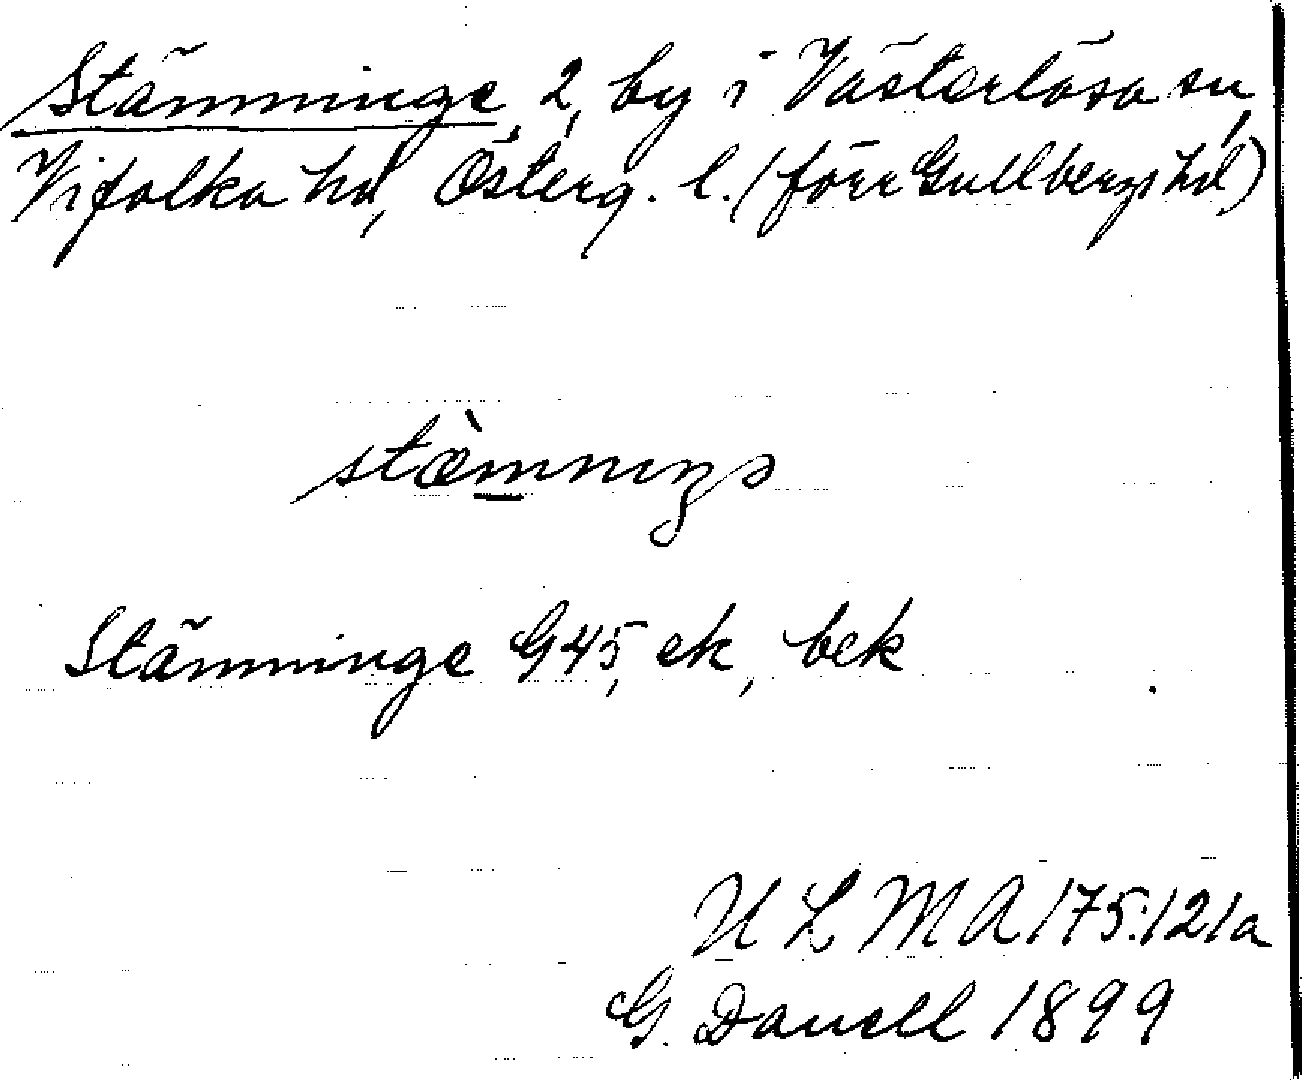 Stämminge, 2, by i Västerlösa sn,
Vifolka hd, Österg. l. (förr Gullbergs hd)
stæ̀mnıŋə
Stämminge G45, ek, bek
ULMA 175:121a
G. Danell 1899